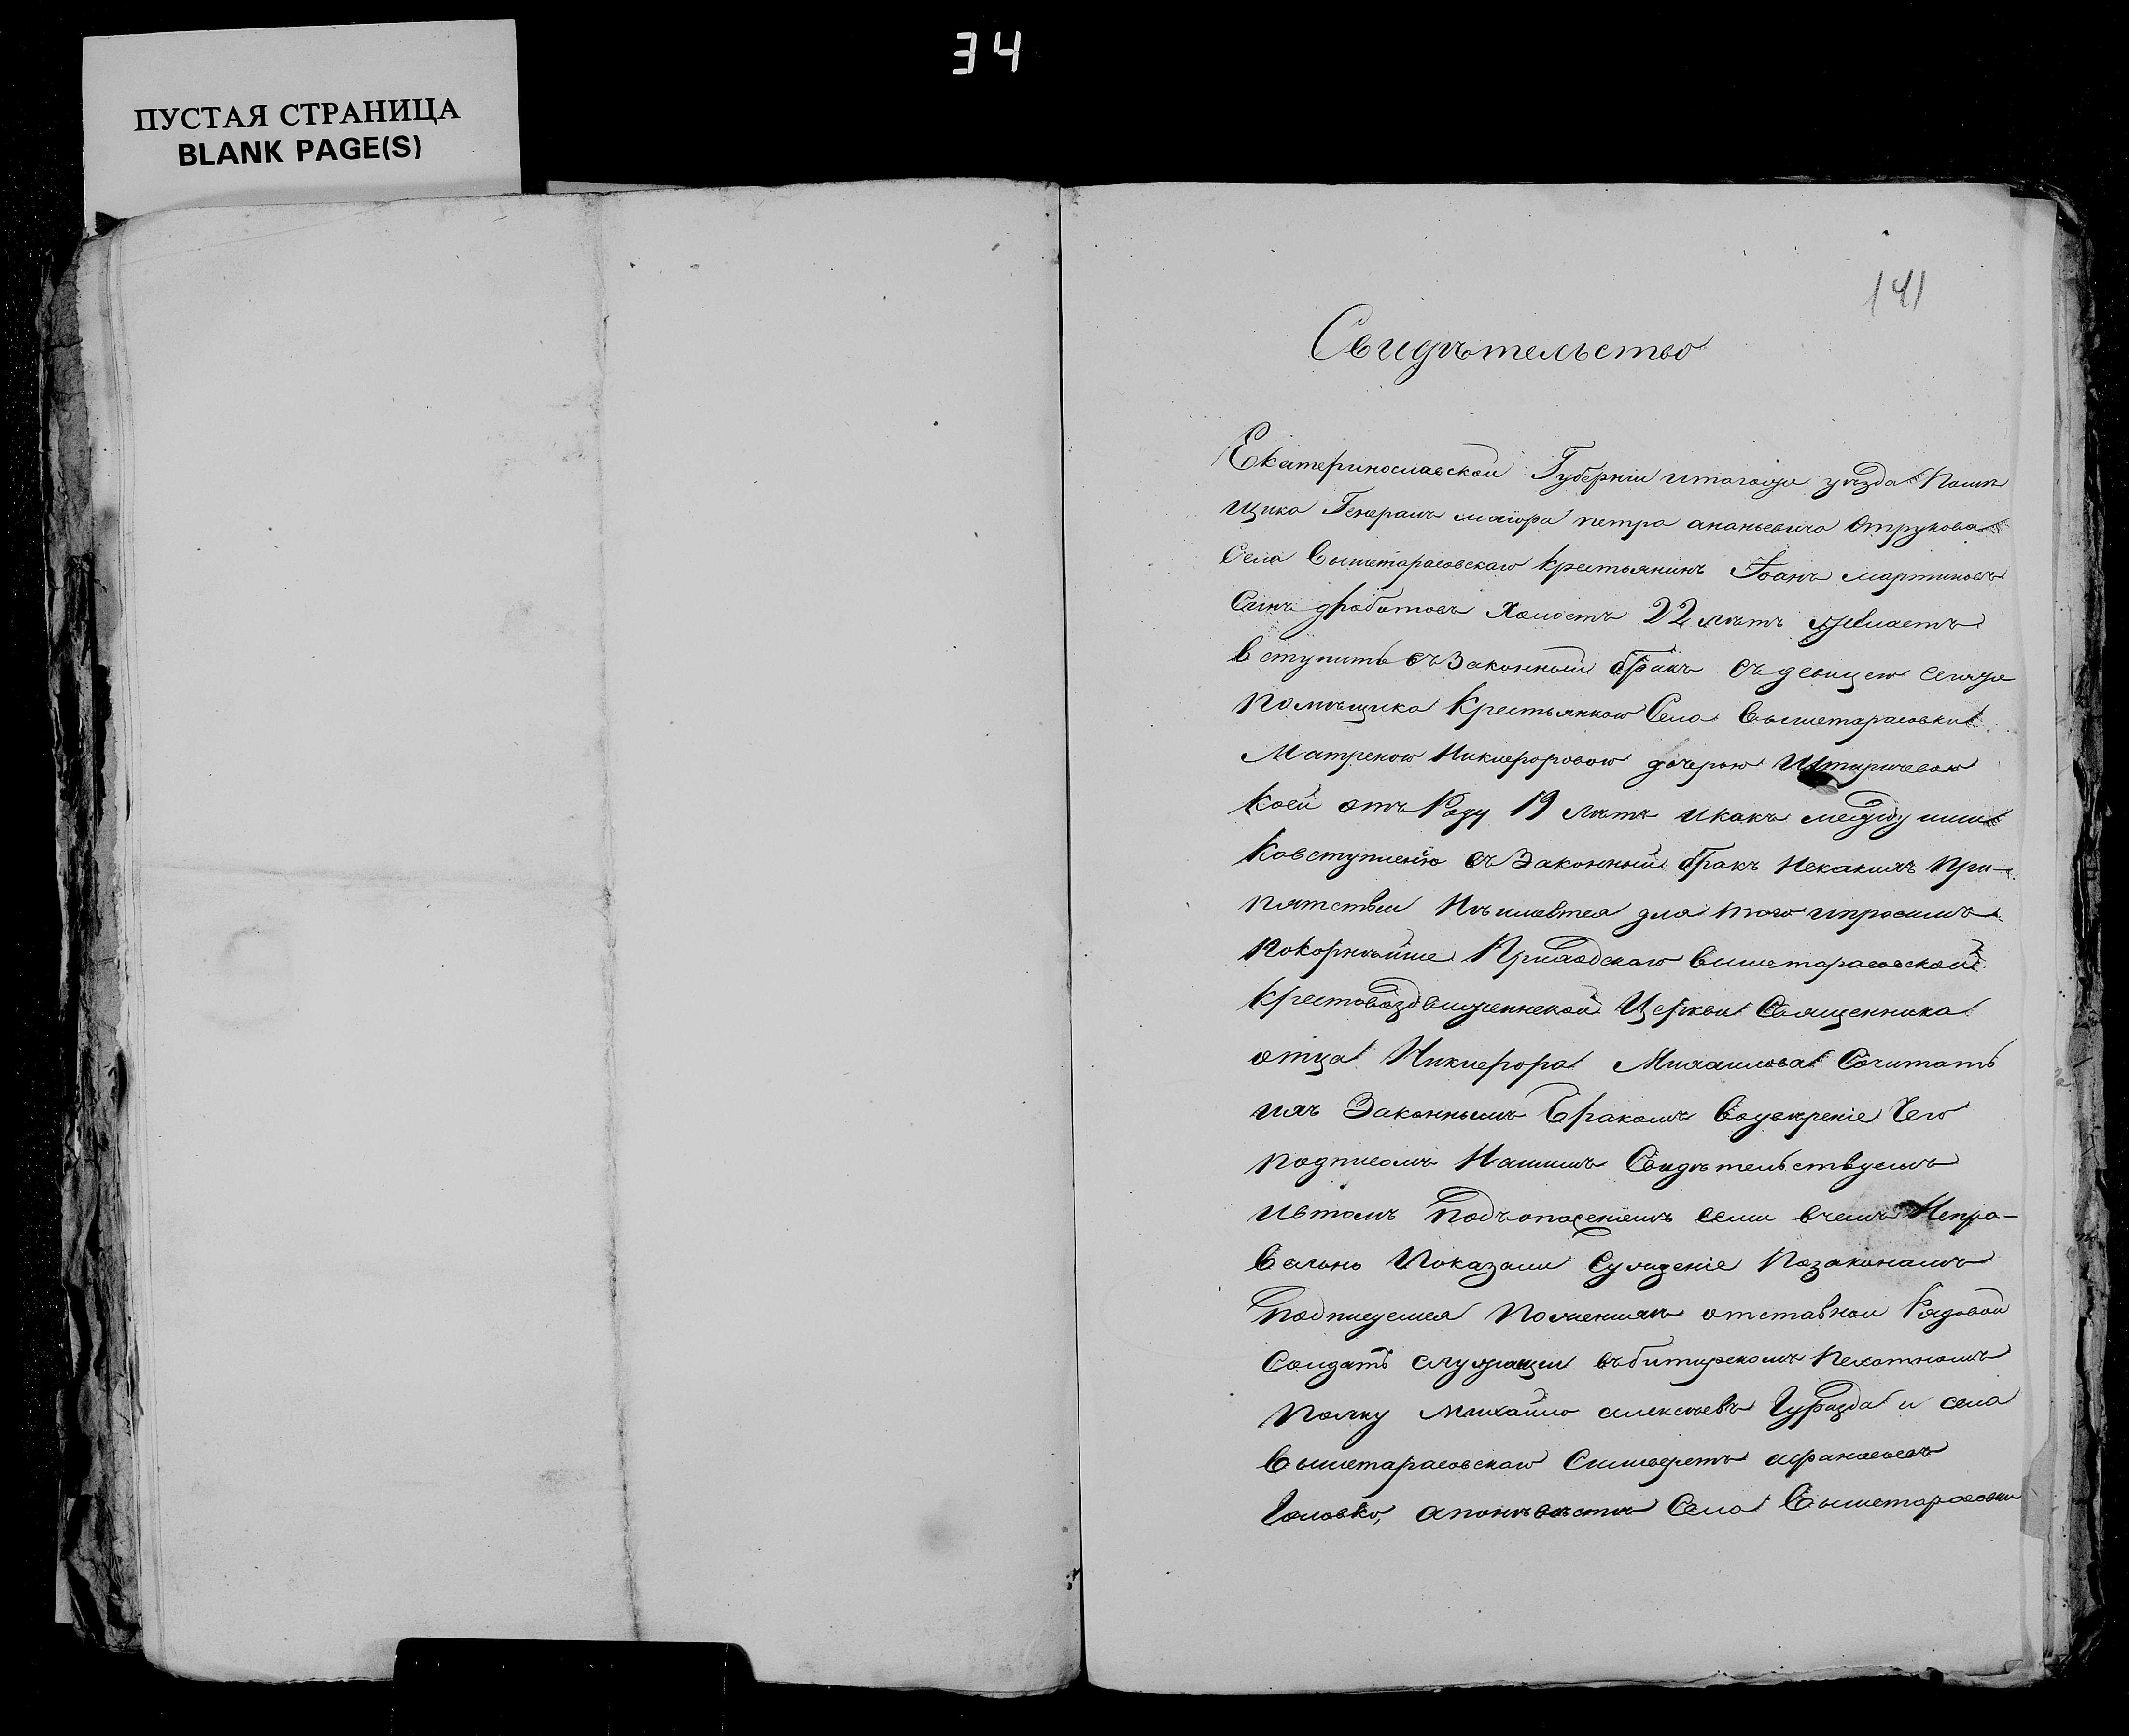 34
ПУСТАЯ СТРАНИЦА
BLANK PAGE(S)
141
Свидѣтельство
Екатеринославской Губерніи итогоже уѣзда Помѣ
щика Генералъ маіора петра ананьевича Струкова
Села Вышетарасовскаго крестьянинъ Іоанъ мартиновъ
Синъ дроботовъ Холостъ 22 лѣтъ желаетъ
вступить въ Законный бракъ съ девицею сегоже
помѣщика Крестьянкою Села Вышетарасовки
Матреною Никифоровою дочерью
коей отъ Роду 19 лѣтъ икакъ между ими
Ковступленію въ Законный бракъ Некакихъ При-
пятствіи Нѣимевтся для того ипросимъ
Покорнѣйше Приходскаго вышетарасовской
крестовоздвиженской Церкви Священника
отца Никифора Михаилова Сочитать
ихъ Законнымъ Бракомъ Воуверение Чего
подписомъ Нашимъ Свидѣтельствуемъ
ивтомъ Подъопасениемъ если вчемъ Непра-
вельно Показали Суждение Позаконамъ
Подписуемся отставной Рядовой
Солдатъ служащи пехотномъ
Полку михайло алексѣевъ Гуразда и села
Вышетарасовскаго афанасьевъ
Головко, Села Вышетарасовки